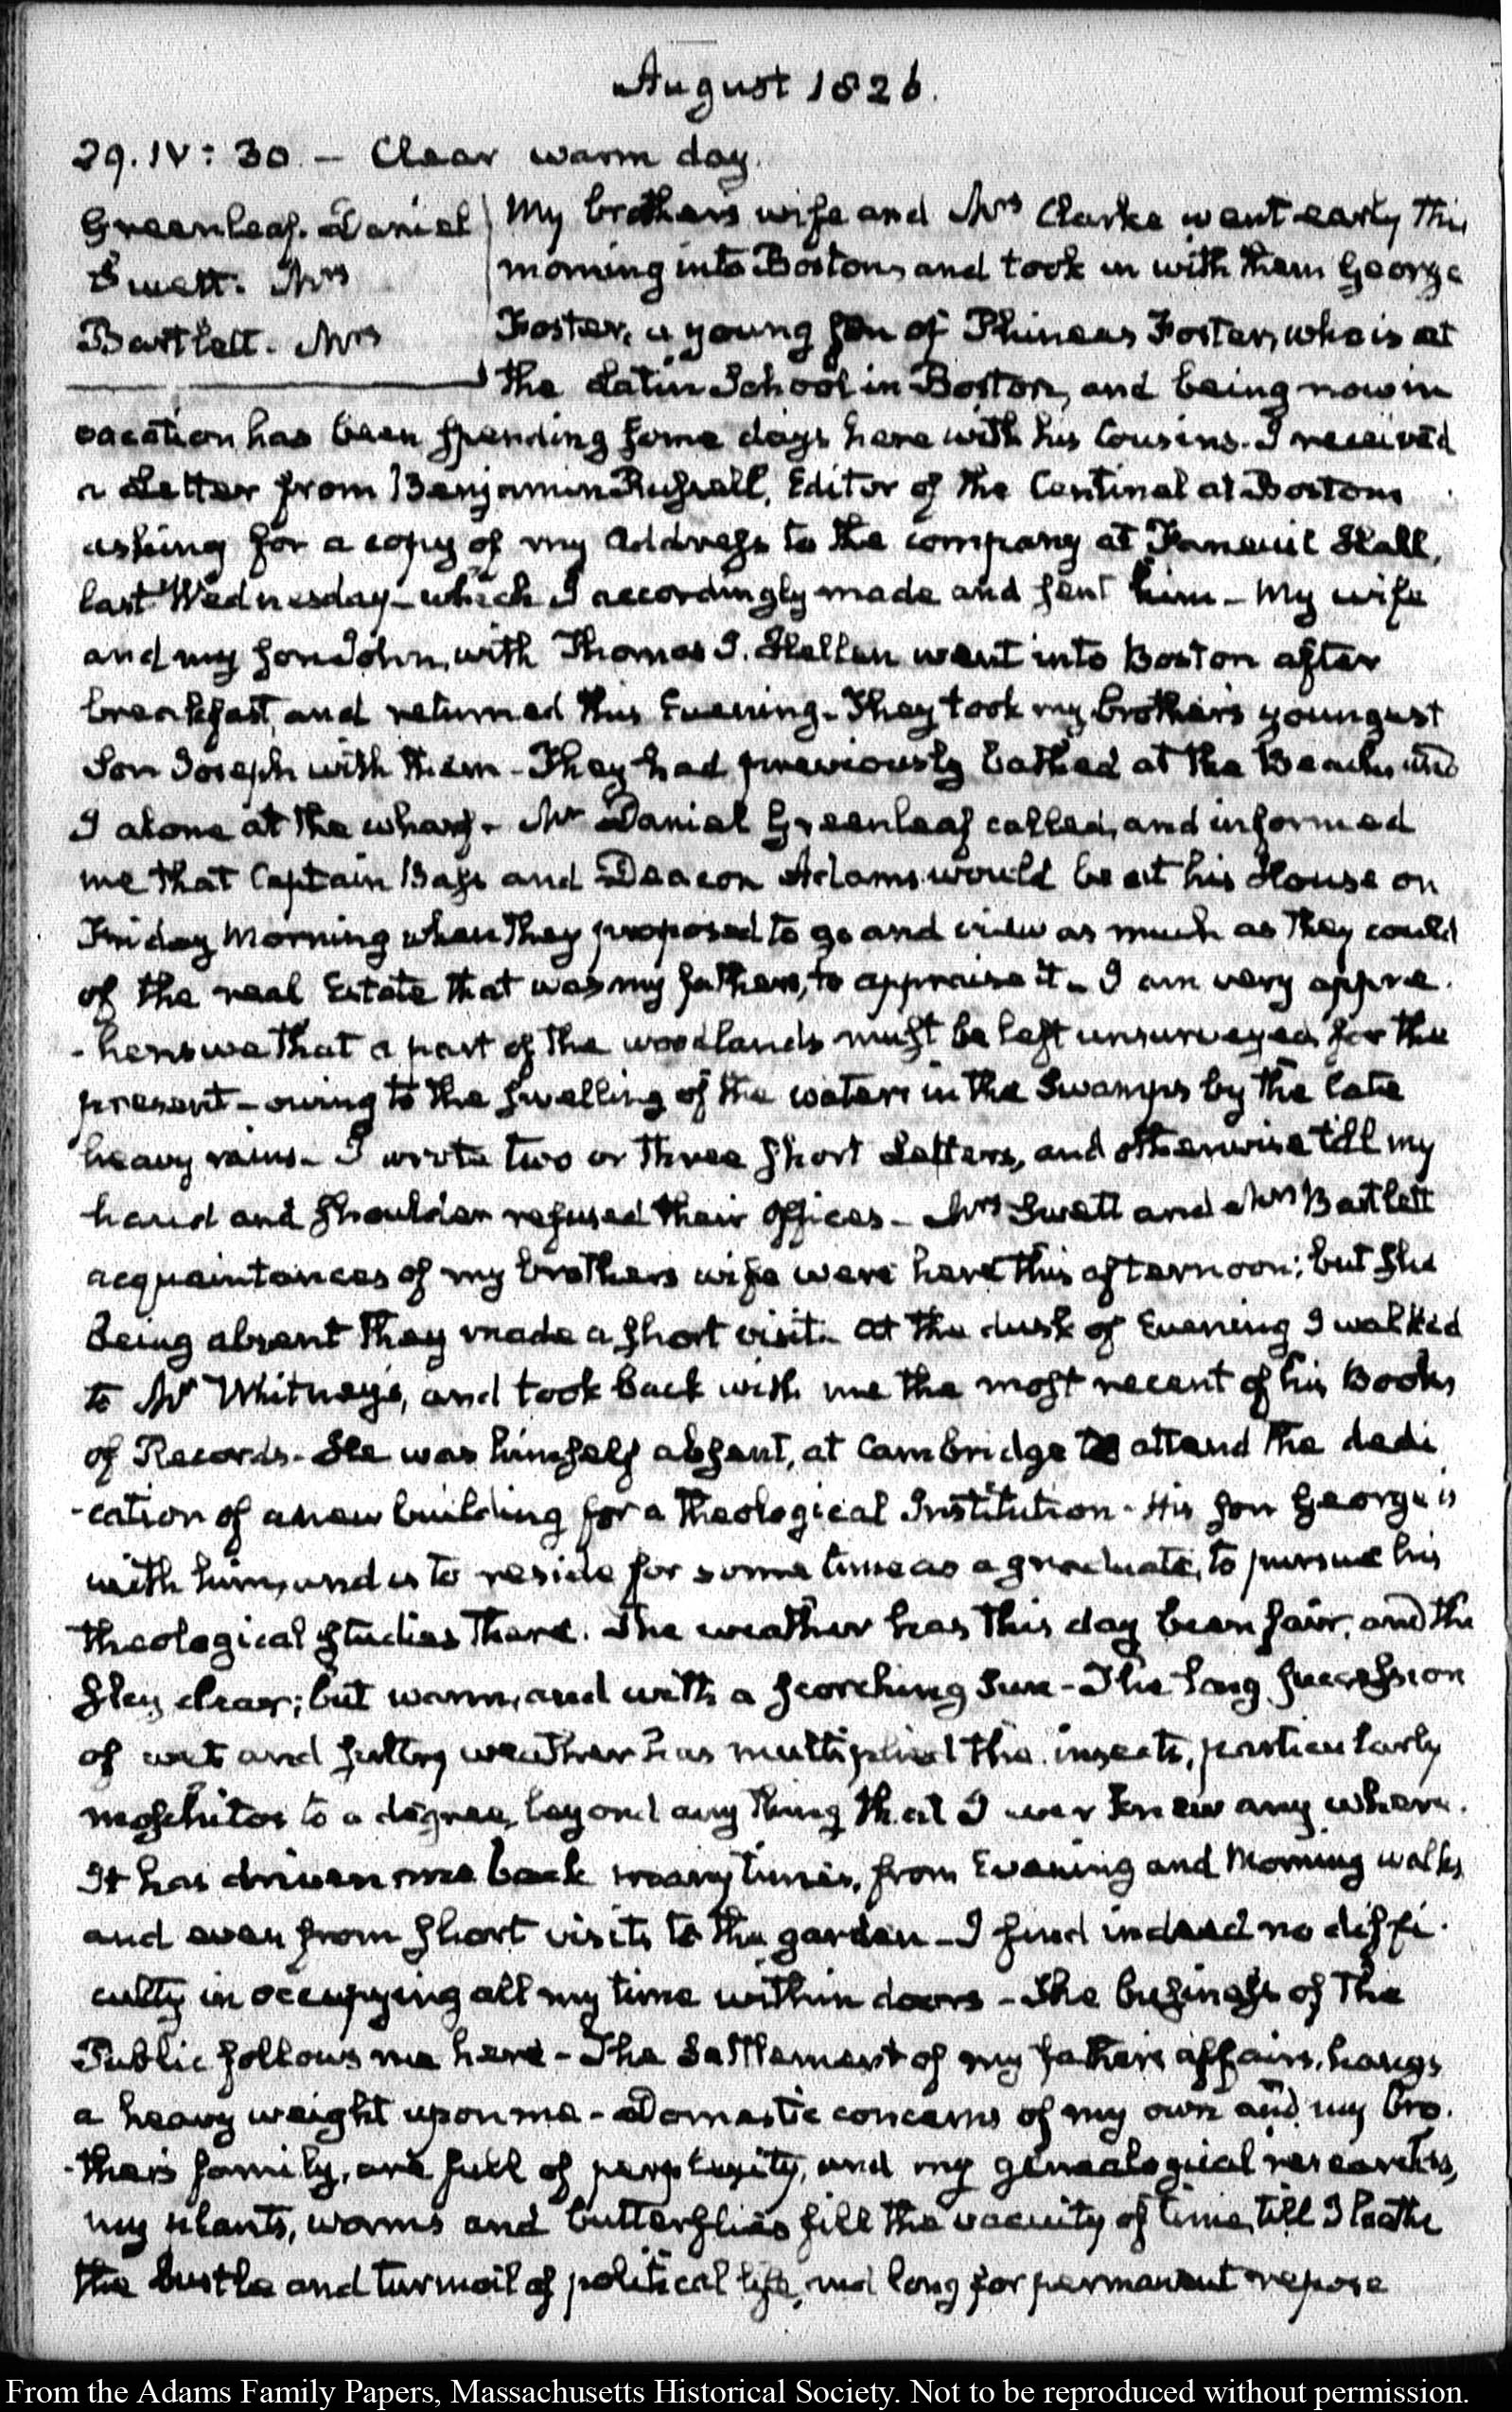 August 1826.
29. IV: 30 — Clear warm day.
Greenleaf. Daniel
Swett. Mrs
Bartlett. Mrs
My brother's wife and Mrs Clarke went early this
morning into Boston, and took in with them George
Foster, a young son of Phineas Foster, who is at
the Latin School in Boston, and being now in
vacation has been spending some days here with his Cousins. I received
a Letter from Benjamin Russell, Editor of the Centinel at Boston
asking for a copy of my Address to the company at Faneuil Hall,
last Wednesday — which I accordingly made and sent him — My wife
and my son John, with Thomas J. Hellen went into Boston after
breakfast, and returned this Evening. They took my brother's youngest
Son Joseph with them — They had previously bathed at the Beach, and
I alone at the wharf. Mr Daniel Greenleaf called, and informed
me that Captain Bass and Deacon Adams would be at his House on
Friday Morning when they proposed to go and view as much as they could
of the real Estate that was my father's, to appraise it — I am very appre-
-hensive that a part of the woodlands must be left unsurveyed for the
present — owing to the swelling of the waters in the Swamps by the late
heavy rains — I wrote two or three short Letters, and otherwise till my
hand and shoulder refused their offices — Mrs Swett and Mrs Bartlett
acquaintances of my brother's wife were here this afternoon; but she
being absent they made a short visit. At the dusk of Evening I walked
to Mr Whitney's, and took back with me the most recent of his Books
of Records. He was himself absent, at Cambridge to attend the dedi
-cation of a new building for a Theological Institution. His son George is
with him, and is to reside for some time as a graduate, to pursue his
theological studies there. The weather has this day been fair, and the
sky clear; but warm, and with a scorching Sun — The long succession
of wet and sultry weather has multiplied the insects, particularly
moschitos to a degree, beyond any thing that I ever knew any where.
It has driven me back many times, from Evening and Morning walks
and even from short visits to the garden — I find indeed no diffi-
culty in occupying all my time within doors — The business of the
Public follows me here — The Settlement of my father's affairs, hangs
a heavy weight upon me — Domestic concerns of my own and my bro-
-ther's family, are full of perplexity, and my genealogical researches,
my plants, worms and butterflies fill the vacuity of time, till I loathe
the bustle and turmoil of political life, and long for permanent repose
From the Adams Family Papers, Massachusetts Historical Society. Not to be reproduced without permission.